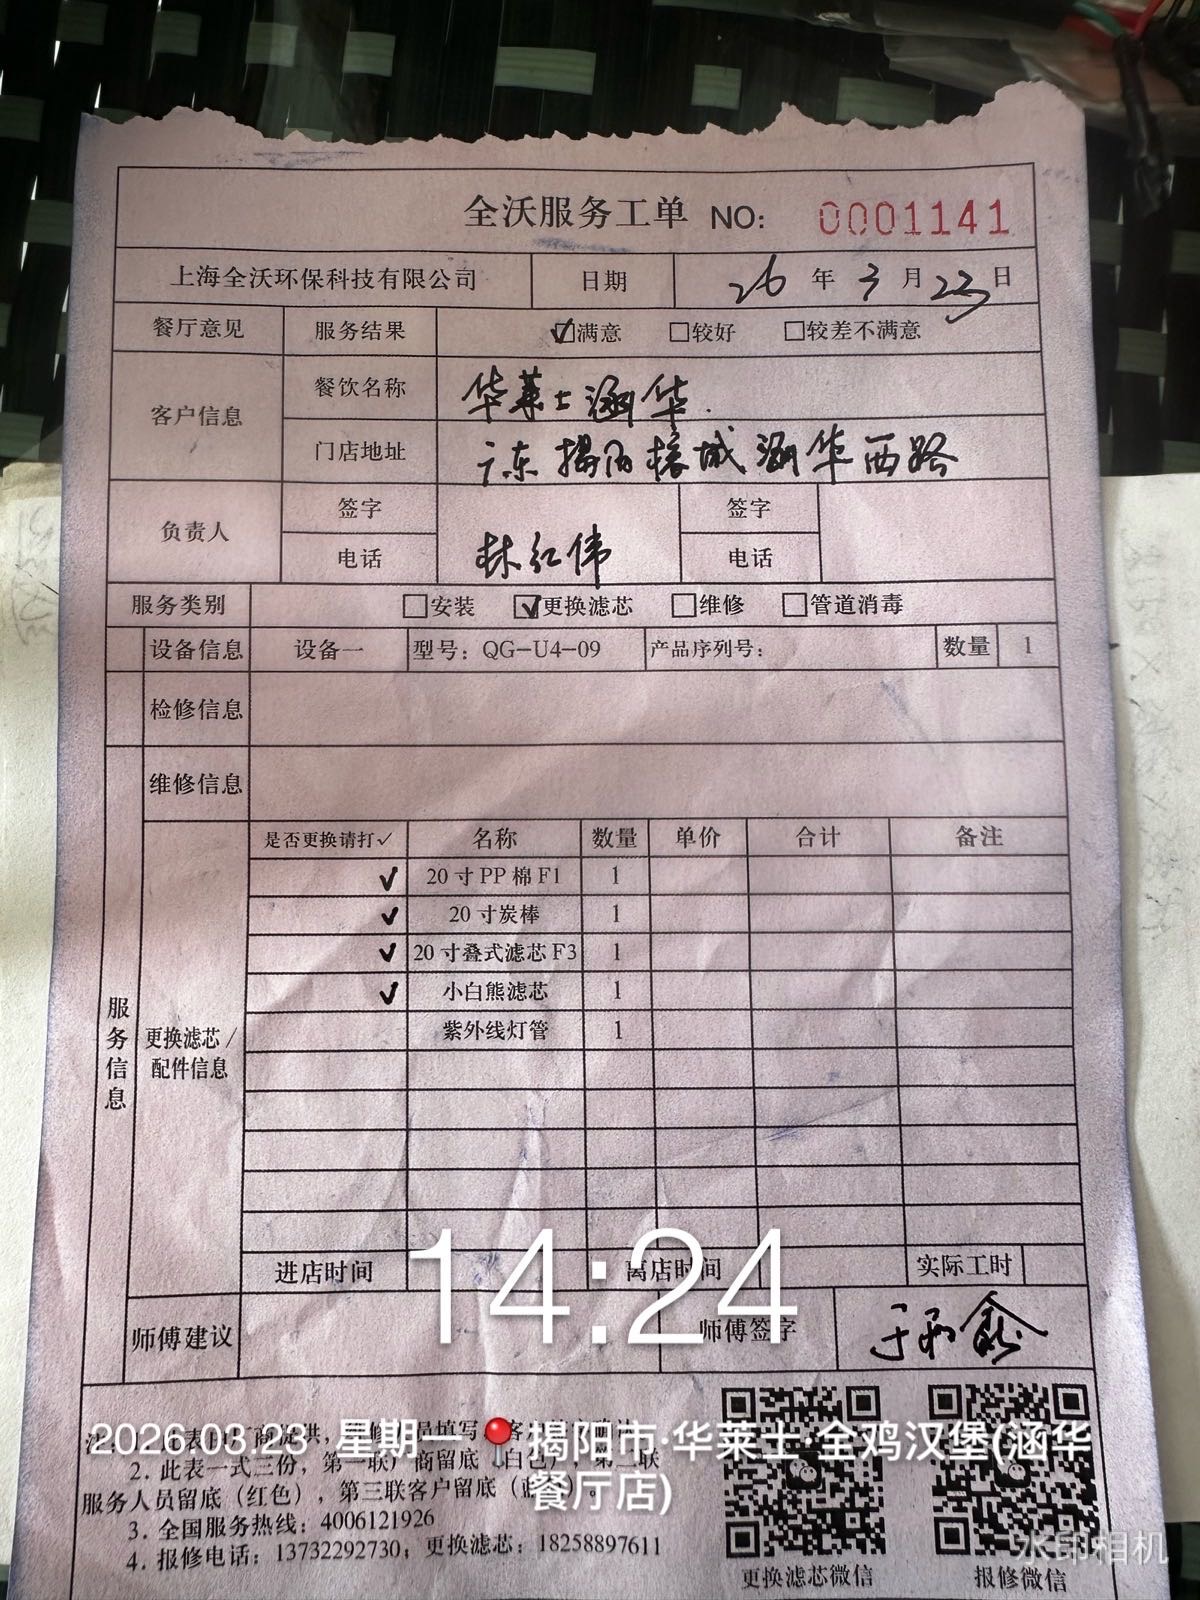 全沃服务工单 NO: 0001141
上海全沃环保科技有限公司 日期 26 年 3 月 23 日
餐厅意见 服务结果 ☑满意 □较好 □较差不满意
客户信息 餐饮名称 华莱士涵华.
门店地址 广东揭阳榕城涵华西路
负责人 签字 签字
电话 林红伟 电话
服务类别 □安装 ☑更换滤芯 □维修 □管道消毒
设备信息 设备一 型号：QG-U4-09 产品序列号： 数量 1
检修信息
维修信息
服务信息
更换滤芯/配件信息
是否更换请打✓ 名称 数量 单价 合计 备注
✓ 20寸PP棉F1 1
✓ 20寸炭棒 1
✓ 20寸叠式滤芯F3 1
✓ 小白熊滤芯 1
紫外线灯管 1
进店时间 离店时间 实际工时
14:24
师傅建议 师傅签字
2026.03.23 星期一 揭阳市·华莱士·全鸡汉堡(涵华餐厅店)
2. 此表一式三份，第一联厂商留底（白色），第二联
服务人员留底（红色），第三联客户留底
3. 全国服务热线：4006121926
4. 报修电话：13732292730；更换滤芯：18258897611
更换滤芯微信 报修微信
水印相机